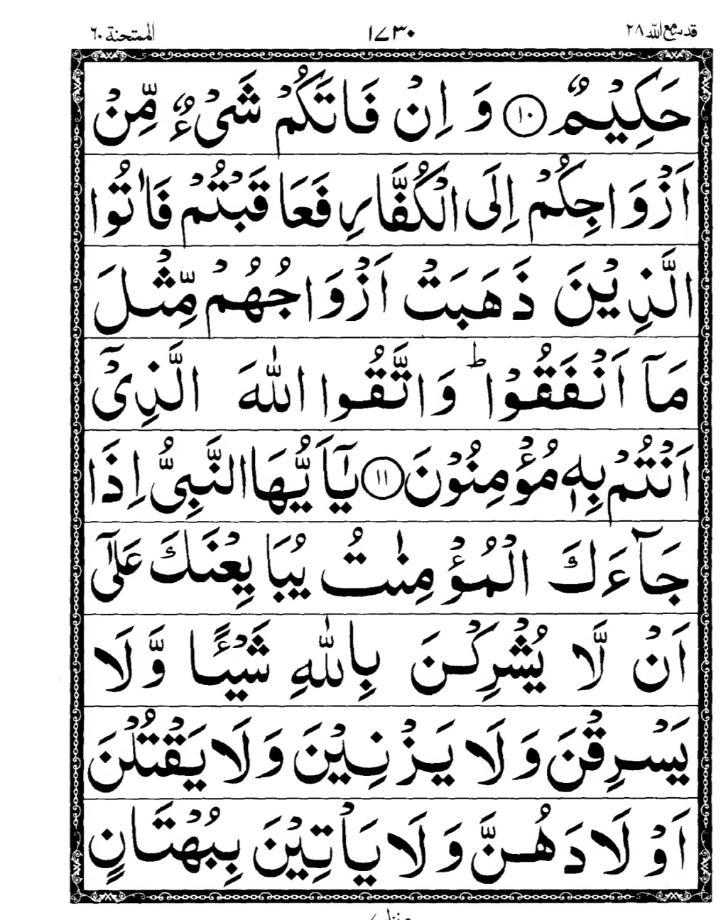 قد سمع الله ٢٨ ١٧٣٠ الممتحنة ٦٠
حَكِيْمٌ ﴿١٠﴾ وَ اِنْ فَاتَكُمْ شَیْءٌ مِّنْ
اَزْوَاجِكُمْ اِلَى الْكُفَّارِ فَعَاقَبْتُمْ فَاٰتُوا
الَّذِيْنَ ذَهَبَتْ اَزْوَاجُهُمْ مِّثْلَ
مَاۤ اَنْفَقُوْا ؕ وَاتَّقُوا اللّٰهَ الَّذِیْۤ
اَنْتُمْ بِهٖ مُؤْمِنُوْنَ ﴿١١﴾ يٰۤاَيُّهَا النَّبِیُّ اِذَا
جَآءَكَ الْمُؤْمِنٰتُ يُبَايِعْنَكَ عَلٰۤى
اَنْ لَّا يُشْرِكْنَ بِاللّٰهِ شَيْـًٔا وَّلَا
يَسْرِقْنَ وَلَا يَزْنِيْنَ وَلَا يَقْتُلْنَ
اَوْلَادَهُنَّ وَلَا يَاْتِيْنَ بِبُهْتَانٍ